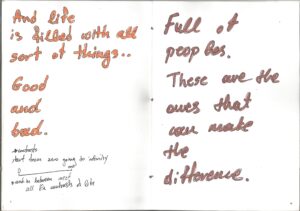 And life
is filled with all
sort of things..
Good
and
bad.
*contrasts
start from zero going to infinity
and in between
all the contrasts of life
Full of
peoples.
These are the
ones that
can make
the
difference.